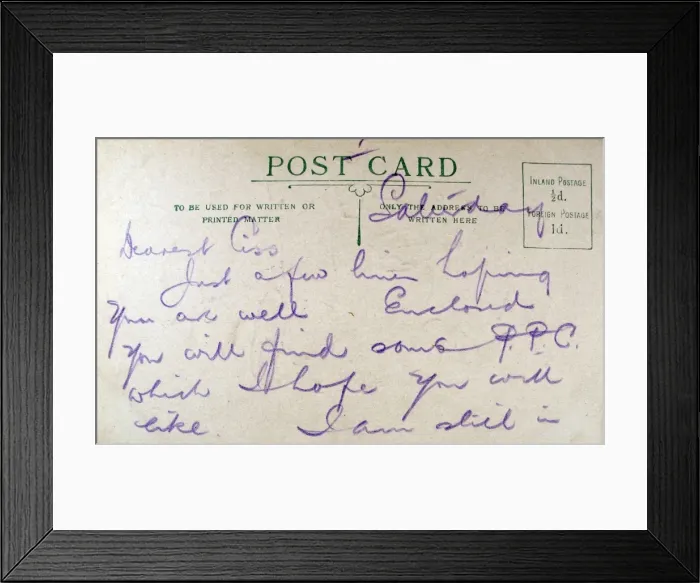 POST CARD
TO BE USED FOR WRITTEN OR
PRINTED MATTER
ONLY THE ADDRESS TO BE
WRITTEN HERE
INLAND POSTAGE
½d.
FOREIGN POSTAGE
1d.
Saturday
Dearest Ciss
Just a few lines hoping
You are well. Enclosed
You will find some P.P.C.
which I hope you will
like. I am still in